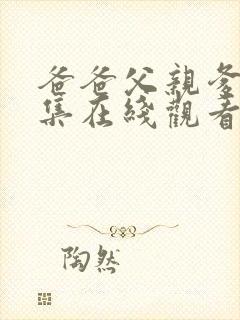 爸爸父親爸
集在綫觀看
陶然